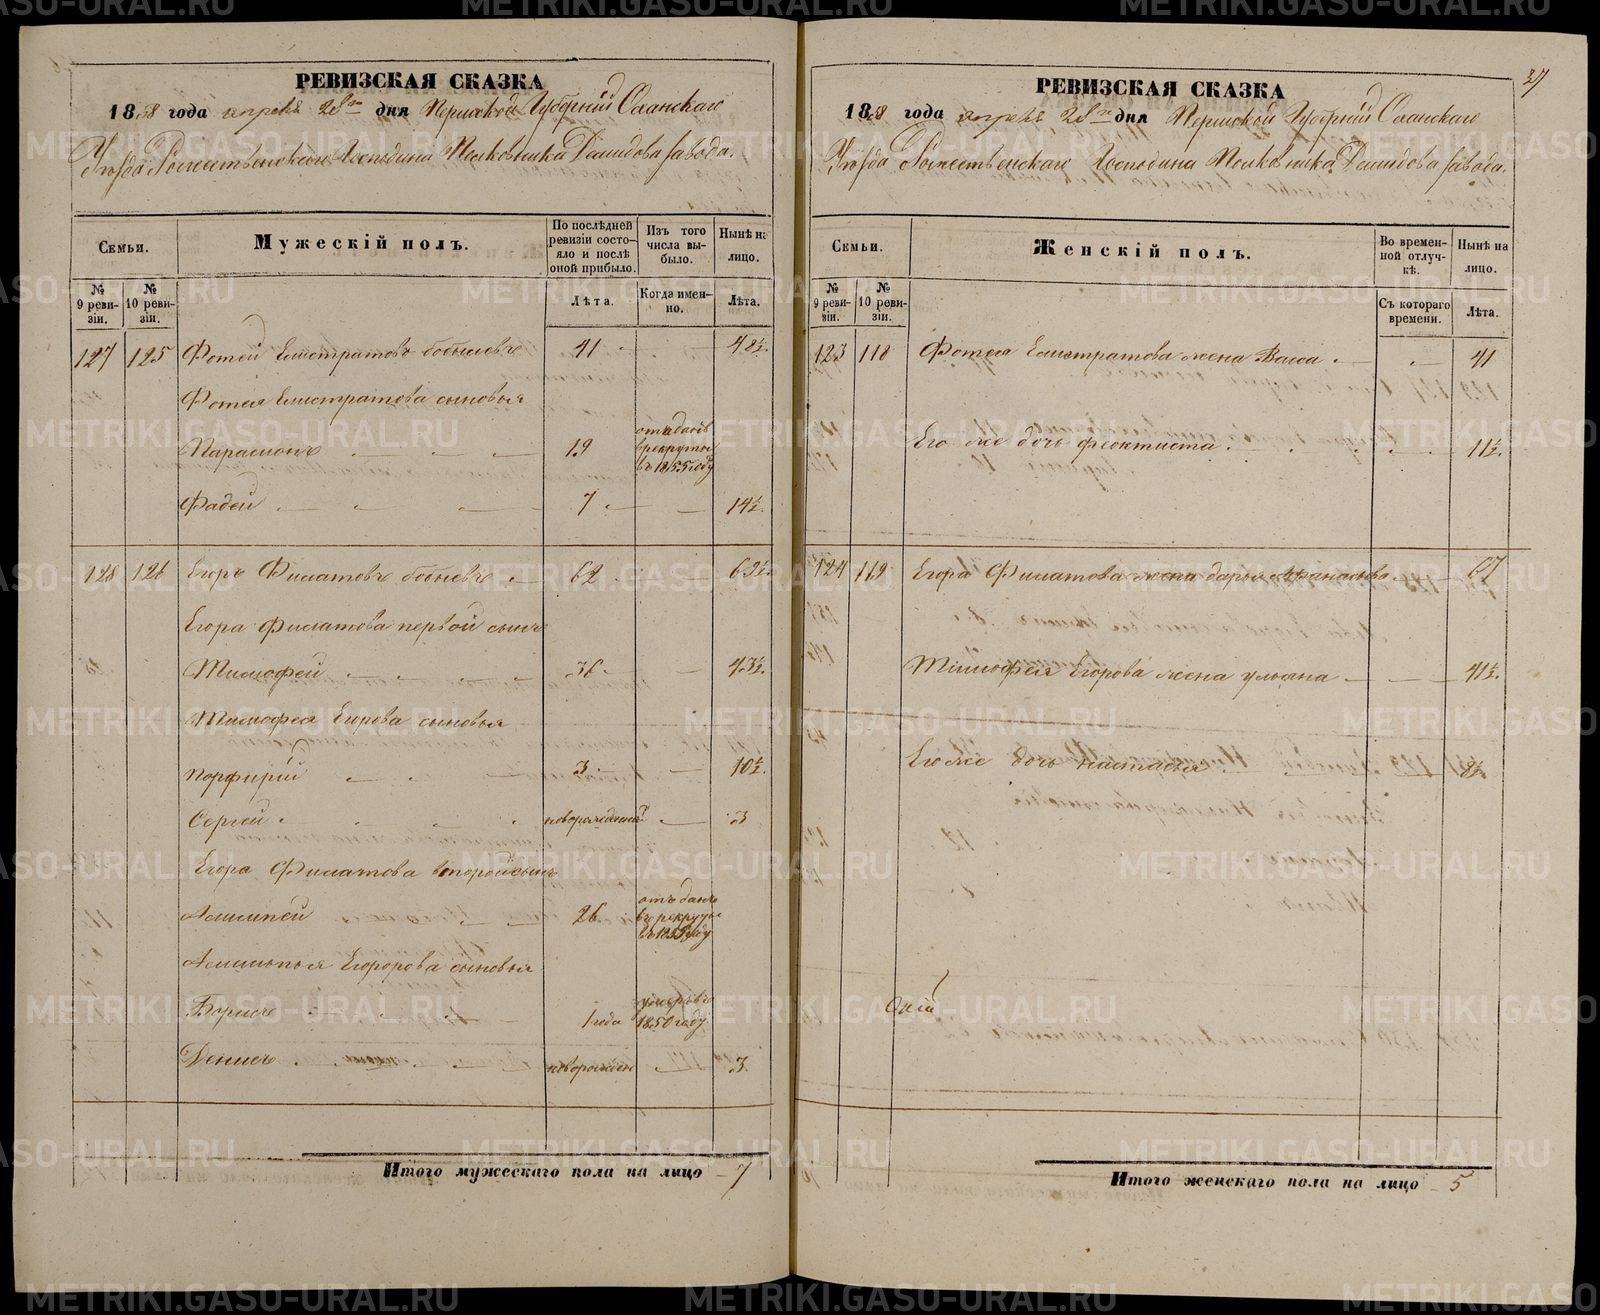 РЕВИЗСКАЯ СКАЗКА
1858 года апреля 28го дня Пермской Губернии Оханскаго
Уезда Рожественскаго Господина Полковника Демидова завода.
Семьи.
Мужескій полъ.
По послѣдней ревизіи состояло и послѣ оной прибыло.
Изъ того числа выбыло.
Нынѣ на лицо.
№ 9 ревизіи.
№ 10 ревизіи.
Лѣта.
Когда именно.
Лѣта.
127 125 Фотей Елистратовъ 41 48½
Фотея Елистратова сыновья
Парамонъ 19 отъ данъ в рекруты въ 1855 году
Фадей 7 14½
128 126 Егоръ Филатовъ 62 69½
Егора Филатова первой сынъ
Тимофей 36 43½
Тимофея Егорова сыновья
Порфирій 3 10½
Сергей новорожденной 3
Егора Филатова второй сынъ
26 отъ данъ въ рекруты въ 1855 году
Егорова сыновья
Борисъ 1 года умеръ въ 1850 году
Денисъ новорожден 3
Итого мужескаго пола на лицо 7
37
РЕВИЗСКАЯ СКАЗКА
1858 года апреля 28го дня Пермской Губерніи Оханскаго
Уезда Рожественскаго Господина Полковника Демидова завода.
Семьи.
Женскій полъ.
Во временной отлучкѣ.
Нынѣ на лицо.
№ 9 ревизіи.
№ 10 ревизіи.
Съ котораго времени.
Лѣта.
123 118 Фотея Елистратова жена Васса 41
Его же дочь феоктиста 11½
124 119 Егора Филатова жена дарья Афанасьева 67
Тимофея Егорова жена ульяна 41½
Его же дочь настасья 8½
Итого женскаго пола на лицо 5
METRIKI.GASO-URAL.RU